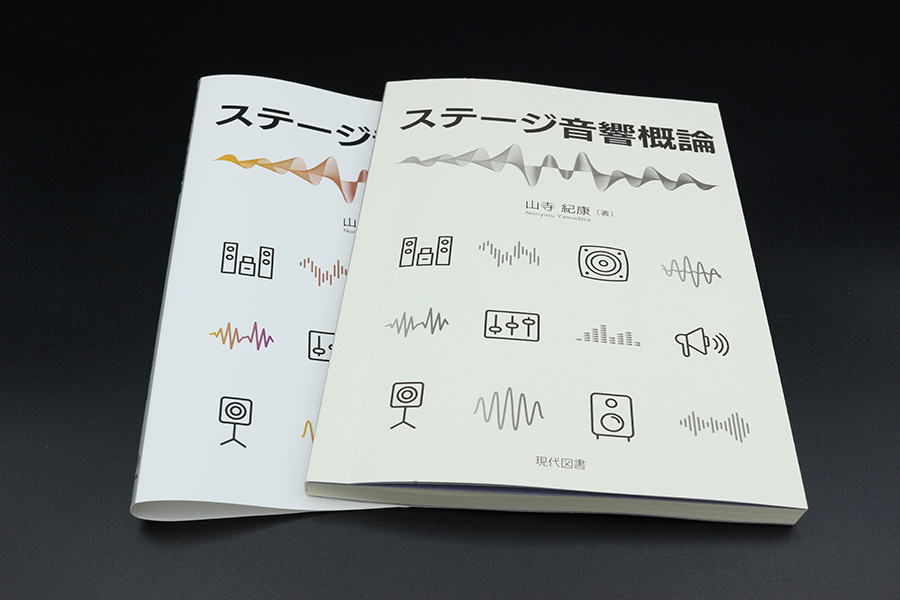 ステージ
山
Nor
ステージ音響概論
山寺 紀康〔著〕
Noriyasu Yamadera
現代図書